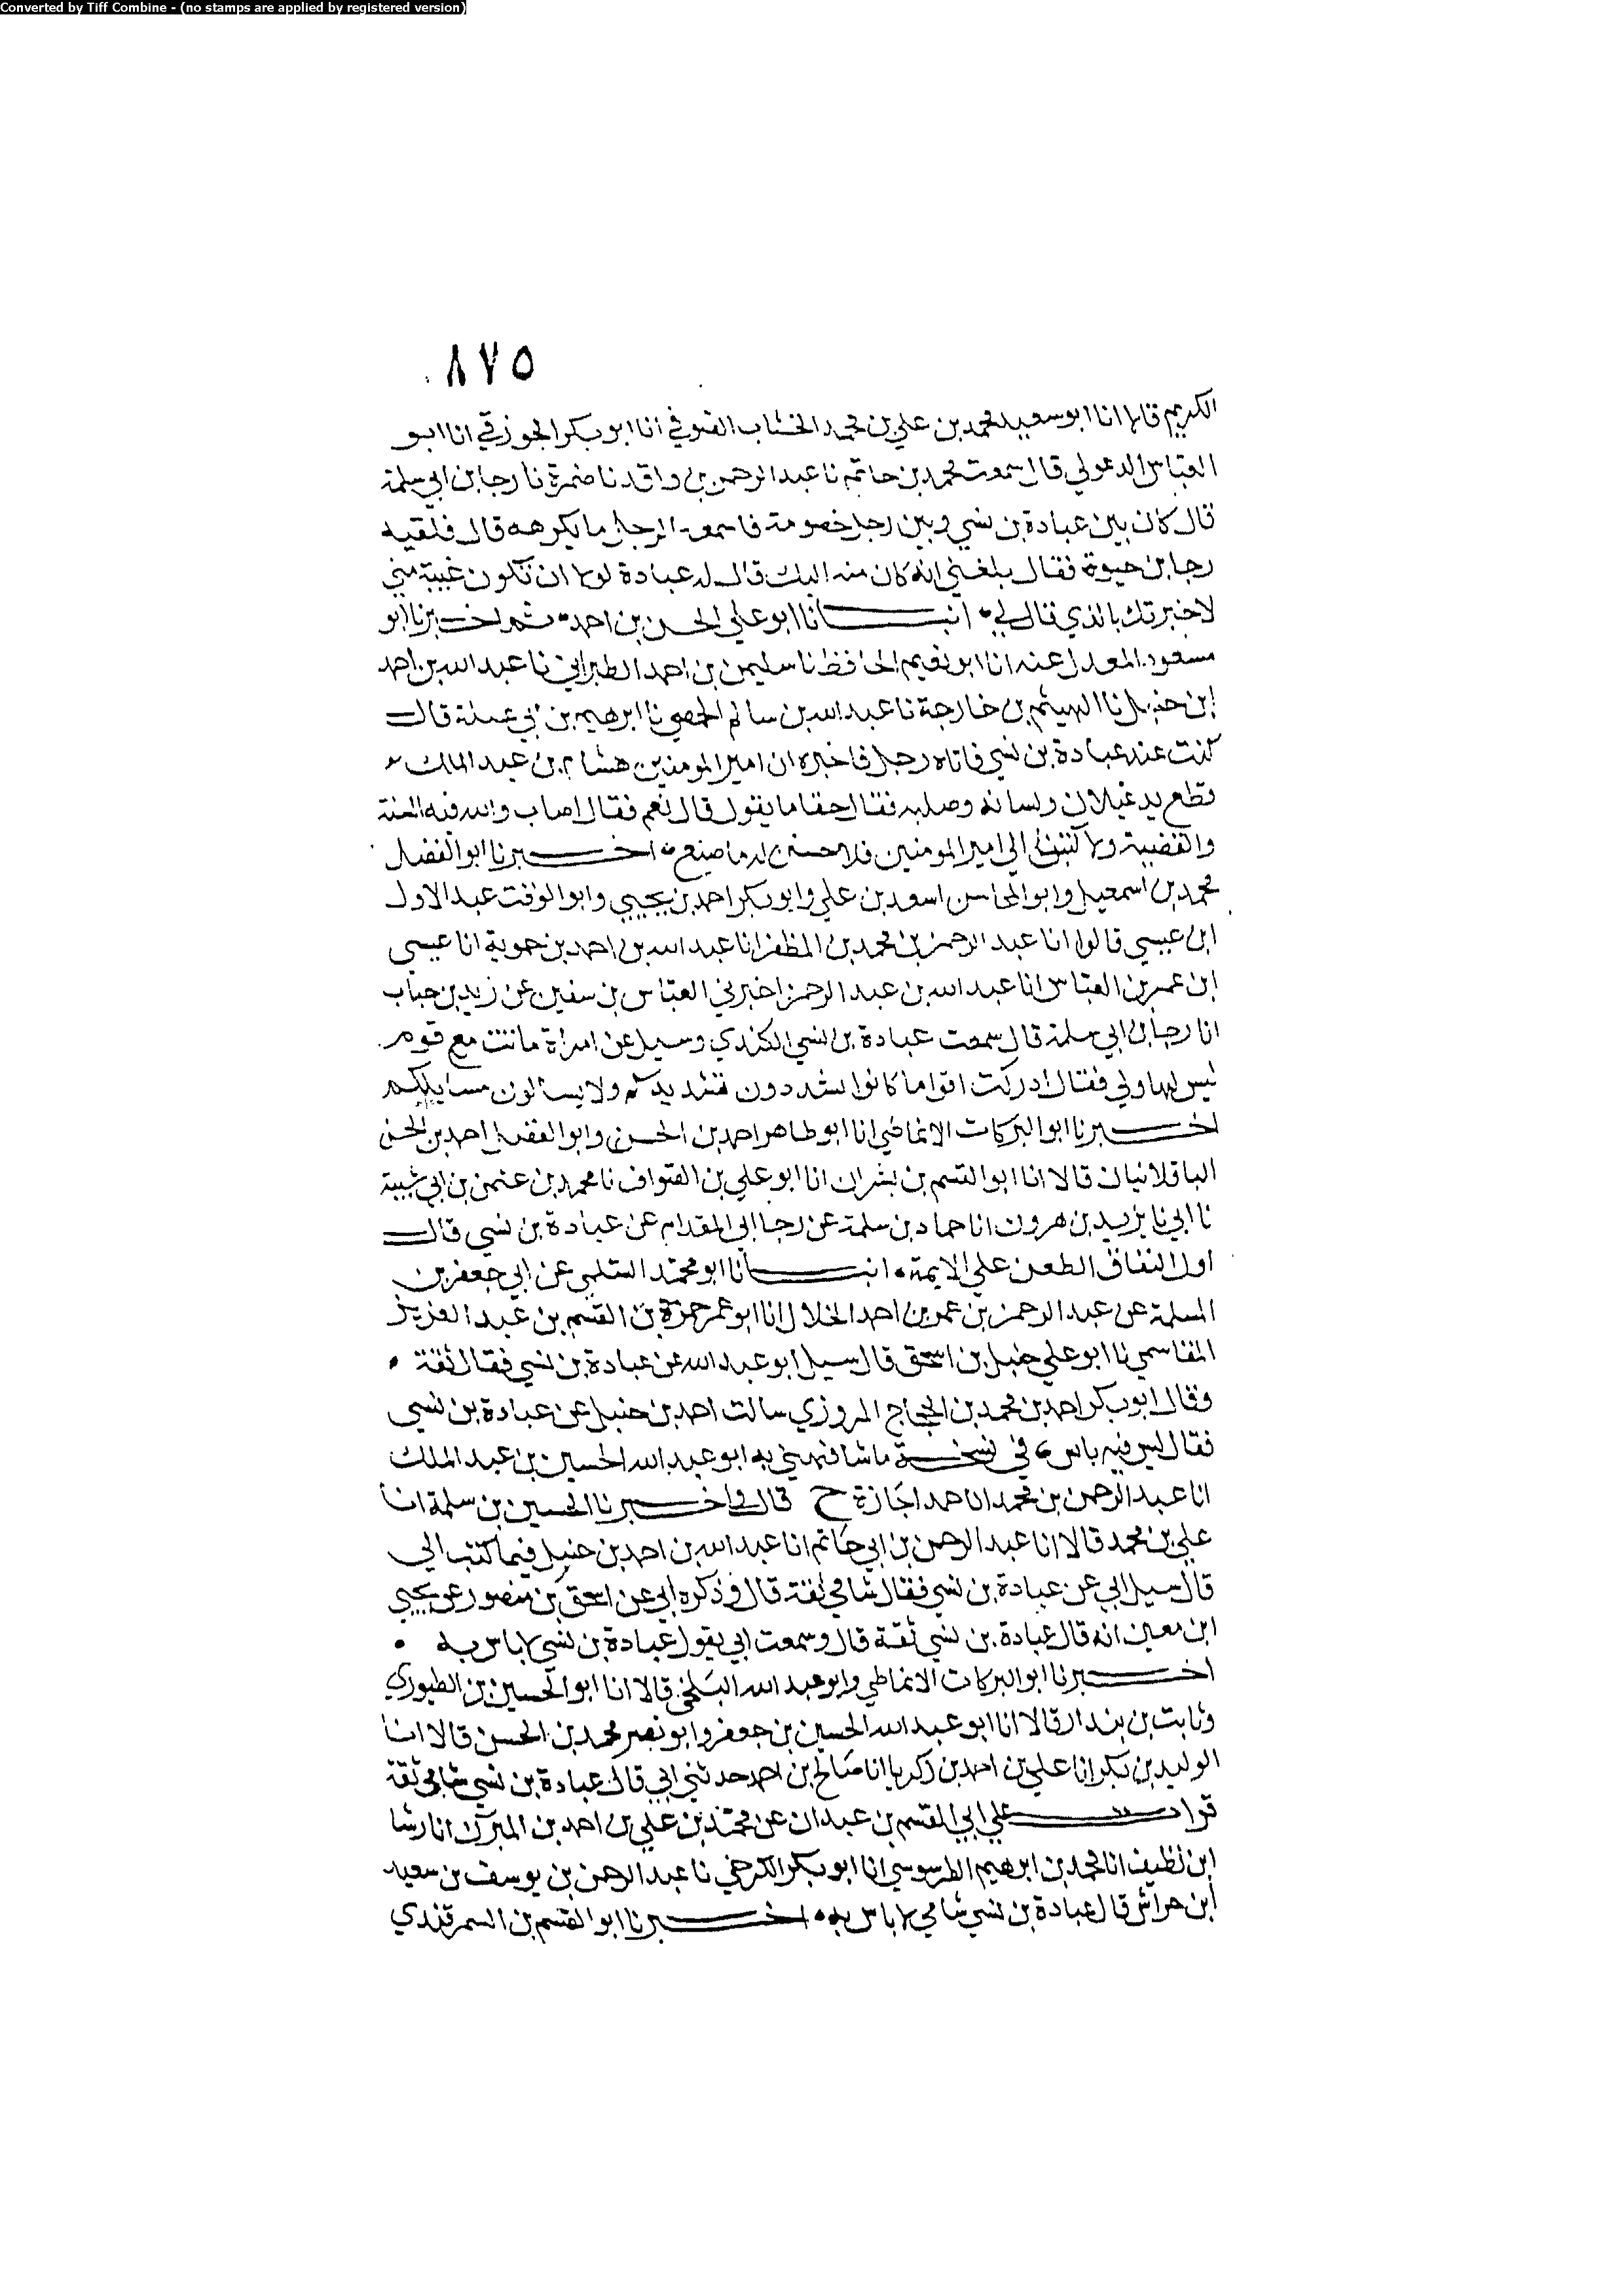 Converted by Tiff Combine - (no stamps are applied by registered version)
٨٧٥
الكريم قالا انا ابو سعيد محمد بن علي بن محمد الخشاب الصوفي انا ابو بكر الجوزقي انا ابو
العباس الدعولي قال سمعت محمد بن حاتم نا عبد الرحمن بن واقد نا ضمرة نا رجا بن ابي سلمة
قال كان بين عبادة بن نسي وبين رجل خصومة فاسمعه الرجل ما يكرهه قال فلقيه
رجا بن حيوة فقال بلغني انه كان منه اليك قال له عبادة لولا ان تكون غيبة مني
لاخبرتك بالذي قال لي انبـــانا ابو علي الحسن بن احمد ثم اخــبرنا ابو
مسعود المعدل عنه انا ابو نعيم الحافظ نا سليمن بن احمد الطبراني نا عبد الله بن احمد
ابن حنبل نا الهيثم بن خارجة نا عبد الله بن سالم الحمصي نا ابرهيم بن ابي عبلة قال
كنت عند عبادة بن نسي فاتاه رجل فاخبره ان امير المومنين هشام بن عبد الملك
قطع يد غيلان ولسانه وصلبه فقال حقا ما يقول قال نعم فقال اصاب والله فيه السنة
والقضية ولاكتبن الى امير المومنين فلاحسنن له ما صنع اخــبرنا ابو الفضل
محمد بن اسمعيل وابو المحاسن اسعد بن علي وابو بكر احمد بن يحيى وابو الوقت عبد الاول
ابن عيسى قالوا انا عبد الرحمن بن محمد بن المظفر انا عبد الله بن احمد بن حموية انا عيسى
ابن عمر بن العباس انا عبد الله بن عبد الرحمن اخبرني العباس بن سفين عن زيد بن حباب
انا رجا بن ابي سلمة قال سمعت عبادة بن نسي الكندي وسيل عن امراة ماتت مع قوم
ليس لها ولي فقال ادركت اقواما كانوا يشددون تشديدكم ولا يسالون مسايلكم
اخــبرنا ابو البركات الانماطي انا ابو طاهر احمد بن الحسن وابو الفضل احمد بن الحسن
الباقلانيان قالا انا ابو القسم بن بشران انا ابو علي بن الصواف نا محمد بن عثمن بن ابي شيبة
نا ابي نا يزيد بن هرون انا حماد بن سلمة عن رجا ابي المقدام عن عبادة بن نسي قال
اول النفاق الطعن على الايمة انبـــانا ابو محمد السلمي عن ابي جعفر بن
المسلمة عن عبد الرحمن بن عمر بن احمد الخلال انا ابو عمر حمزة بن القسم بن عبد العزيز
الهاشمي نا ابو علي حنبل بن اسحق قال سيل ابو عبد الله عن عبادة بن نسي فقال ثقة
وقال ابو بكر احمد بن محمد بن الحجاج المروزي سالت احمد بن حنبل عن عبادة بن نسي
فقال ليس فيه باس في نسخــة ما شافهني به ابو عبد الله الحسين بن عبد الملك
انا عبد الرحمن بن محمد انا حمد اجازة ح قال واخــبرنا الحسين بن سلمة انا
علي بن محمد قالا انا عبد الرحمن بن ابي حاتم انا عبد الله بن احمد بن حنبل فيما كتب الي
قال سيل ابي عن عبادة بن نسي فقال شامي ثقة قال وذكره ابي عن اسحق بن منصور عن يحيى
ابن معين انه قال عبادة بن نسي ثقة قال وسمعت ابي يقول عبادة بن نسي لا باس به
اخــبرنا ابو البركات الانماطي وابو عبد الله البلخي قالا انا ابو الحسين بن الطيوري
وثابت بن بندار قالا انا ابو عبد الله الحسين بن جعفر وابو نصر محمد بن الحسن قالا انا
الوليد بن بكر انا علي بن احمد بن زكريا انا صالح بن احمد حدثني ابي قال عبادة بن نسي شامي ثقة
قرات علي ابي القسم بن عبدان عن محمد بن علي بن احمد بن المبرك انا رشا
ابن نظيف انا محمد بن ابرهيم الطرسوسي انا ابو بكر الكرخي نا عبد الرحمن بن يوسف بن سعيد
ابن خراش قال عبادة بن نسي شامي لا باس به اخــبرنا ابو القسم بن السمرقندي